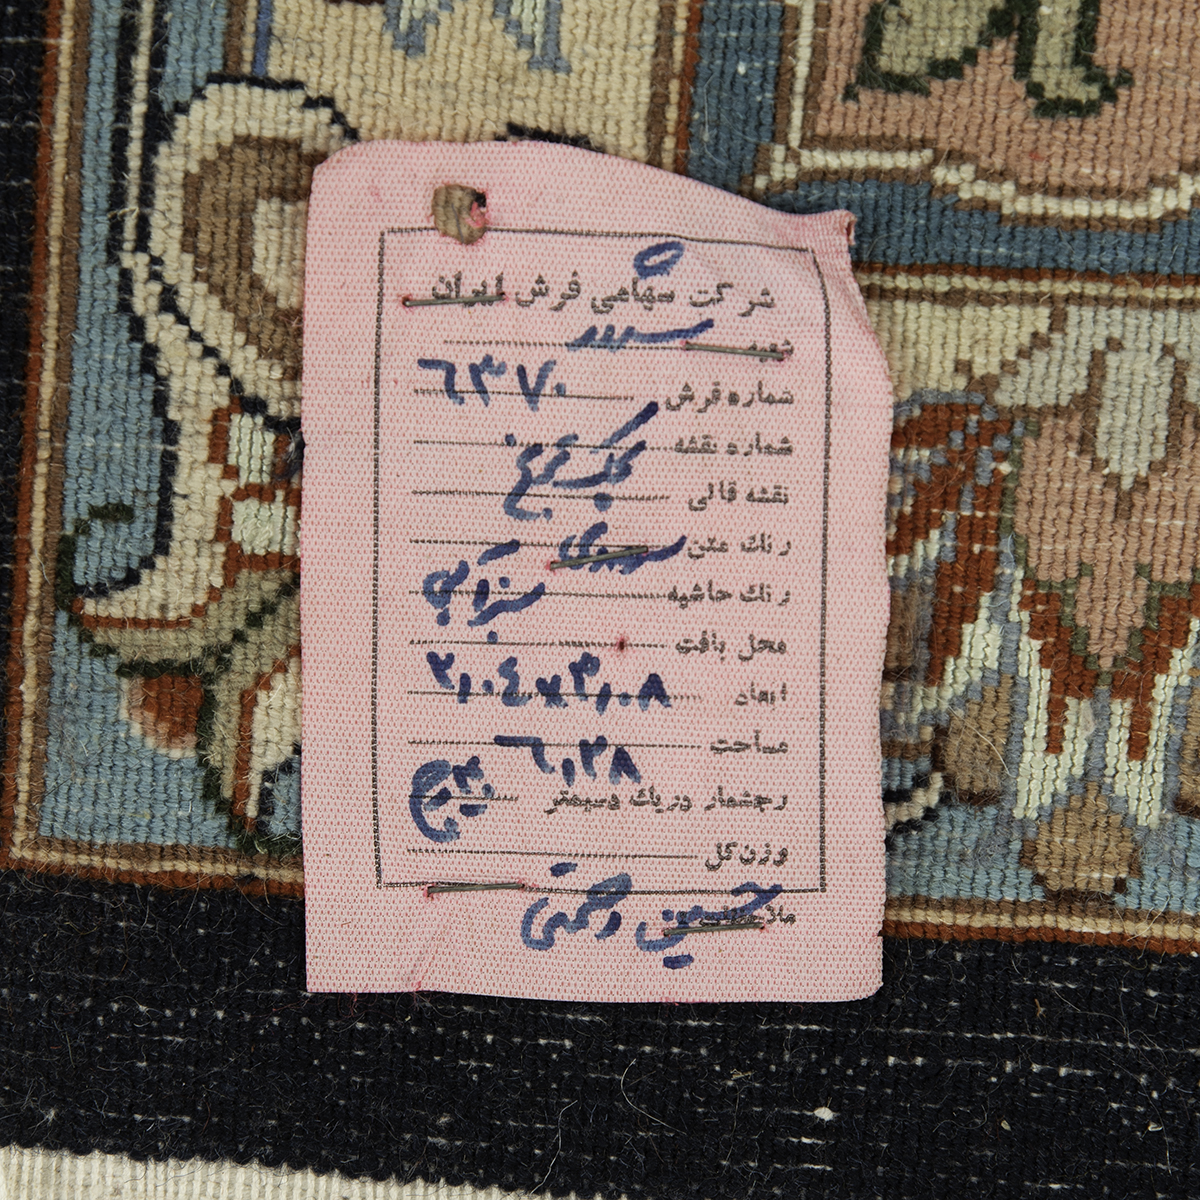 شرکت سهامی فرش ایران
شعبه
شماره فرش ٦٣٧٠
شماره نقشه
نقشه قالی
رنك متن سورمه‌ای
رنك حاشیه سبز آبی
محل بافت
ابعاد ٣,٠٨ × ٢,٠٤
مساحت ٦,٢٨
رجشمار در یك دسیمتر ٣٠
وزن کل
ملاحظات حسین رحمتی